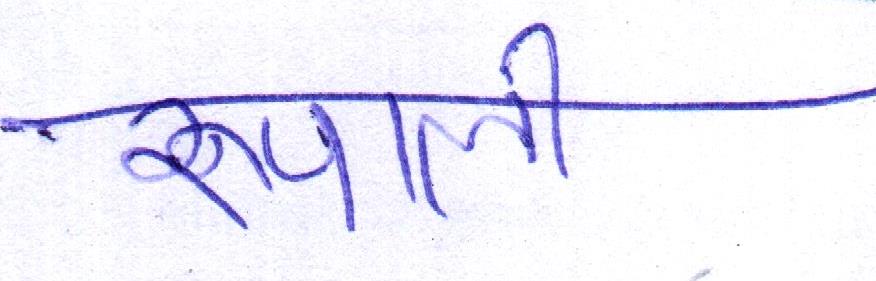 रुपाली